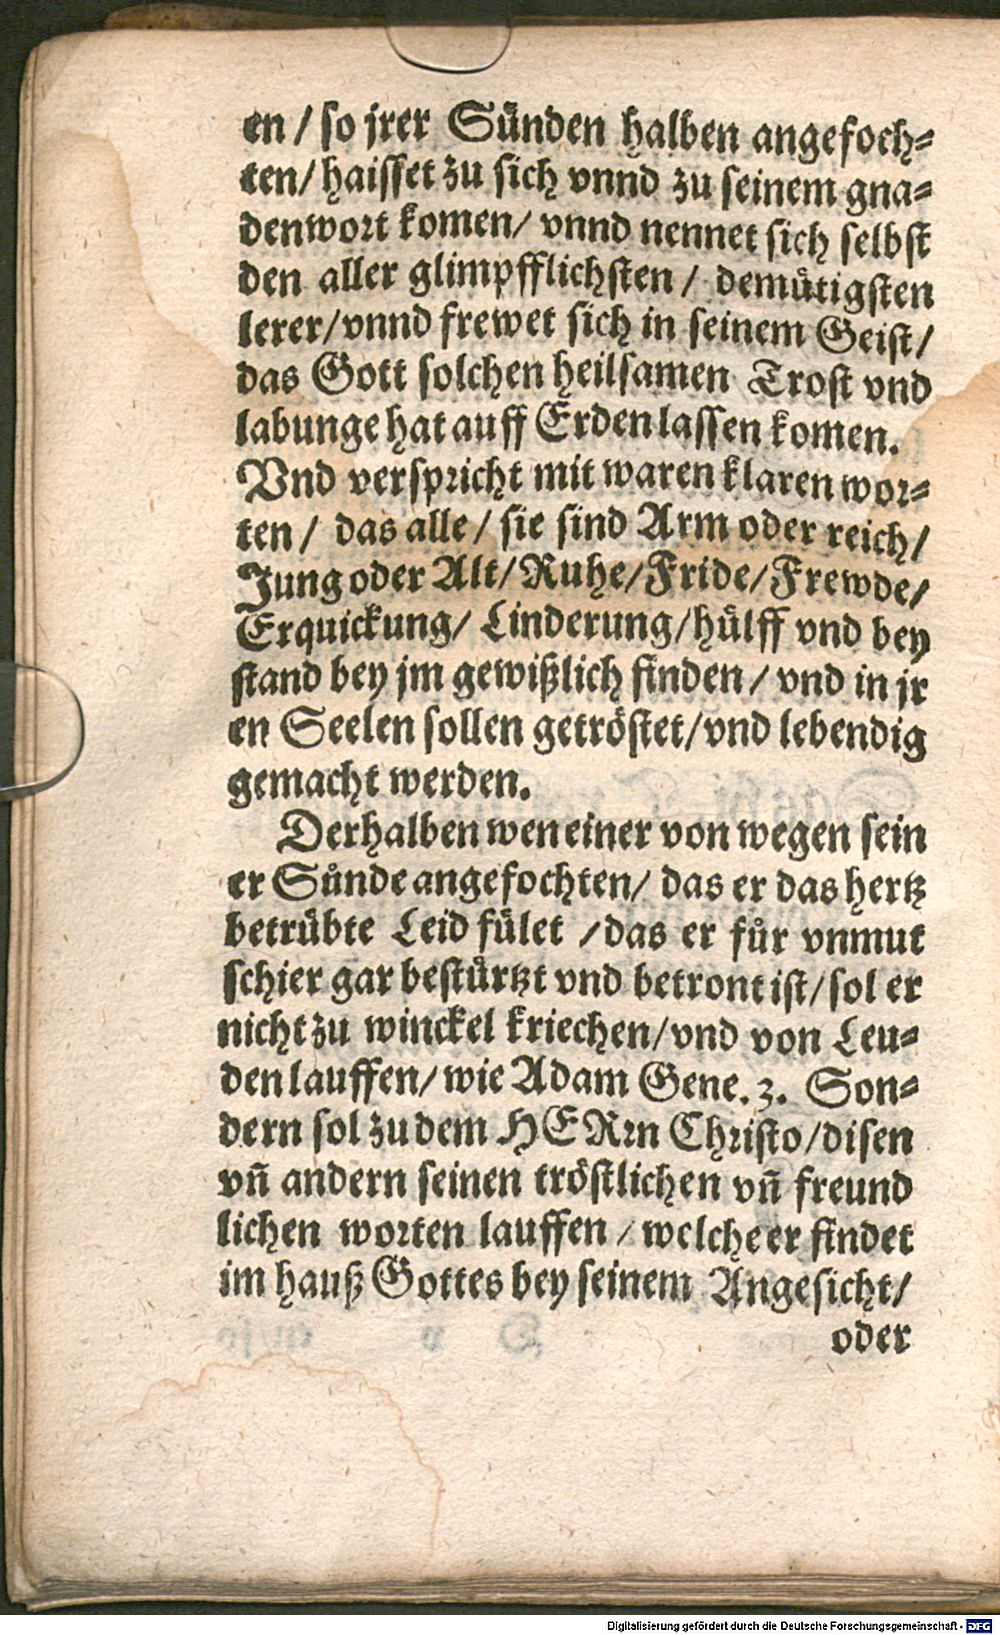 en / so jrer Sünden halben angefoch⸗
ten/ haisset zu sich vnnd zu seinem gna⸗
denwort komen/ vnnd nennet sich selbst
den aller glimpfflichsten / demütigsten
lerer/vnnd frewet sich in seinem Geist/
das Gott solchen heilsamen Trost vnd
labunge hat auff Erden lassen komen.
Vnd verspricht mit waren klaren wor⸗
ten/ das alle/ sie sind Arm oder reich/
Jung oder Alt/ Ruhe/Fride/Frewde/
Erquickung/ Linderung/hülff vnd bey
stand bey jm gewißlich finden/ vnd in jr
en Seelen sollen getröstet/vnd lebendig
gemacht werden.
Derhalben wen einer von wegen sein
er Sünde angefochten/ das er das hertz
betrübte Leid fület /das er für vnmut
schier gar bestürtzt vnd betront ist/ sol er
nicht zu winckel kriechen/vnd von Leu⸗
den lauffen/ wie Adam Gene. 3. Son⸗
dern sol zu dem HERrn Christo/disen
vñ andern seinen tröstlichen vñ freund
lichen worten lauffen / welche er findet
im hauß Gottes bey seinem Angesicht/
oder
Digitalisierung gefördert durch die Deutsche Forschungsgemeinschaft - DFG